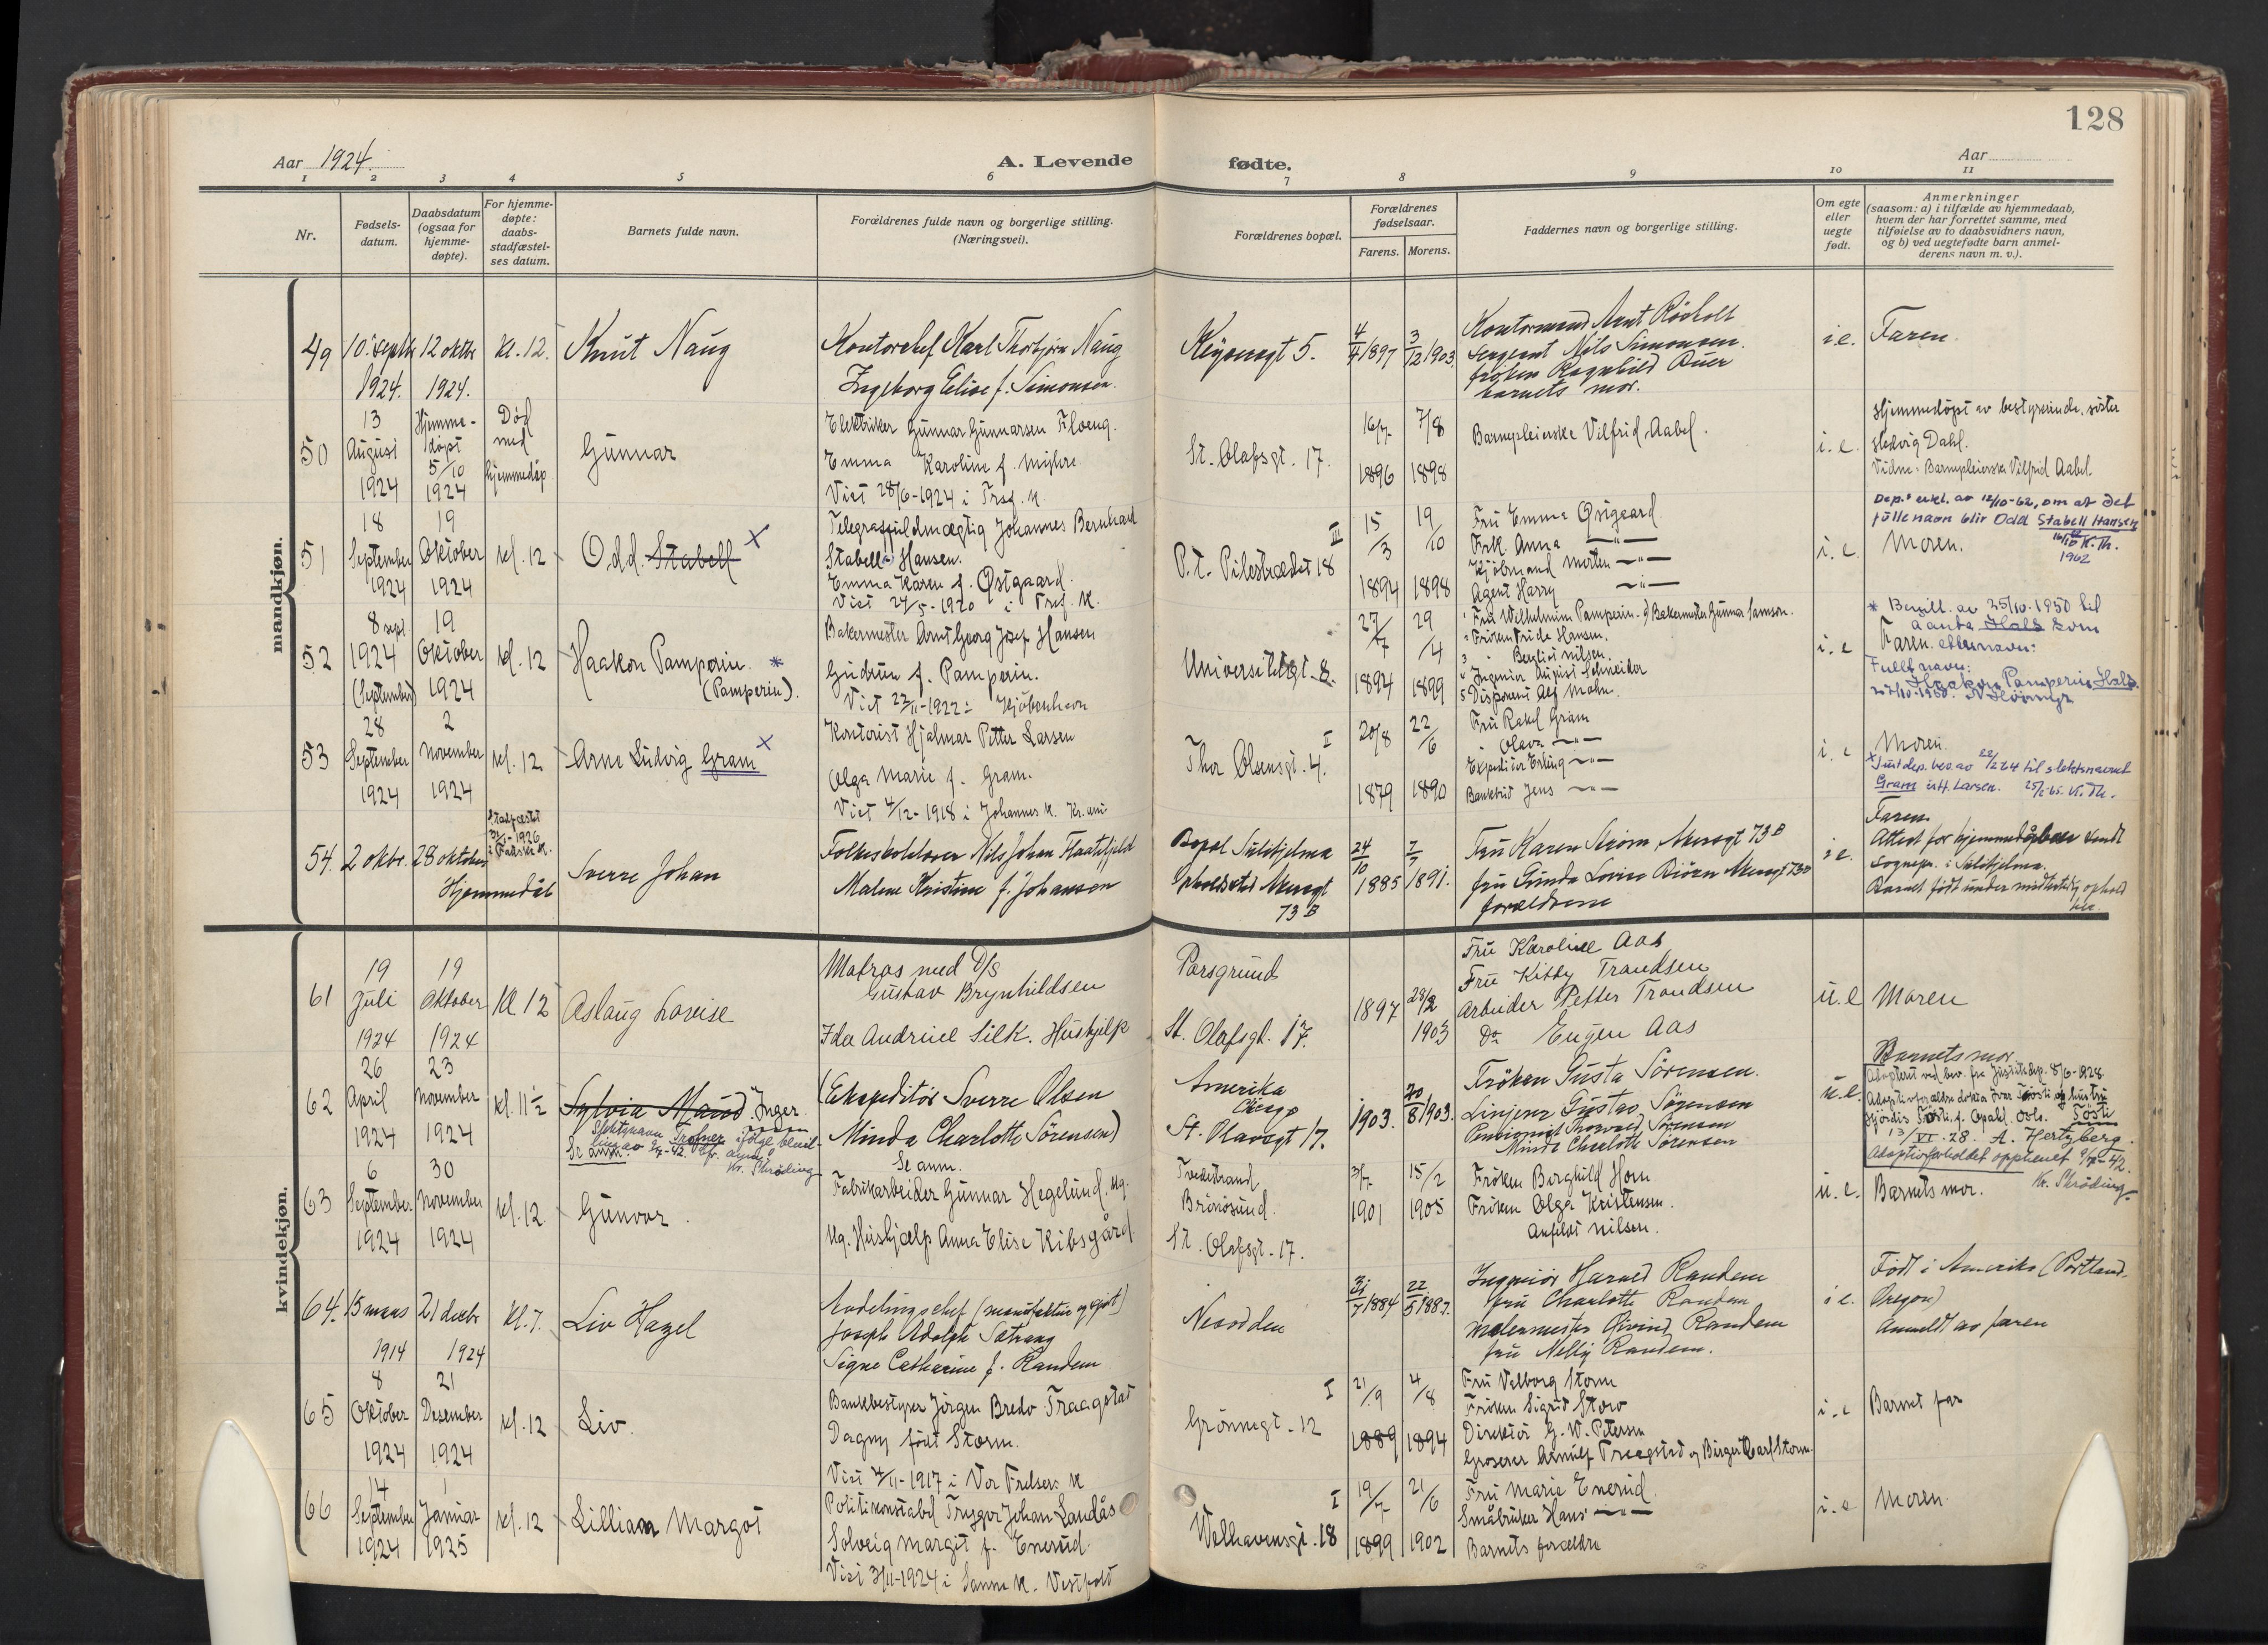 128
Aar 1924.
A. Levende
fødte.
Aar
1 2 3 4 5 6 7 8 9 10 11
Nr.
Fødsels-
datum.
Daabsdatum
(ogsaa for
hjemme-
døpte).
For hjemme-
døpte:
daabs-
stadfæstel-
ses datum.
Barnets fulde navn.
Forældrenes fulde navn og borgerlige stilling.
(Næringsvei).
Forældrenes bopæl.
Forældrenes
fødselsaar.
Farens. Morens.
Faddernes navn og borgerlige stilling.
Om egte
eller
uegte
født.
Anmerkninger
(saasom: a) i tilfælde av hjemmedaab,
hvem der har forrettet samme, med
tilføielse av to daabsvidners navn,
og b) ved uegtefødte barn anmel-
derens navn m. v.).
mandkjøn.
49
10. septbr
1924.
12 oktbr
1924.
kl. 12.
Knut Naug
Kontorchef Karl Thorbjørn Naug
Ingeborg Elise f. Simonsen.
Keysersgt 5.
4/4 1897
3/12 1903
Sergeant Nils Simonsen.
frøken Ragnhild
barnets mor.
i.e.
Faren.
50
13
August
1924
Hjemme-
døpt
5/10
1924
Død
med
hjemmedåp
Gunnar
Elektriker Gunnar Gunnarsen Floeng.
Emma Karoline f.
Viet 28/6-1924 i Tref. K.
St. Olafsgt. 17.
16/7
1896
7/8
1898
Barnepleierske Vilfrid Aabel.
i. e.
Hjemmedøpt av bestyrerinde, søster
Hedvig Dahl.
Vidne: Barnepleierske Vilfrid Aabel.
51
18
September
1924
19
Oktober
1924
kl. 12
Odd. Stabell x
Telegraffuldmægtig Johannes Bernhard
Stabell Hansen.
Emma Karen f. Østgaard.
Viet 24/5-1920 i Tref. K.
III
P.t. Pilestrædet 18
15/3
1894
19/10
1898
Fru Emma Østgaard
Frk. Anna —"—
Kjøbmand Morten —"—
Agent Harry —"—
i. e.
Dep.s erkl. av 12/10-62, om at det
fulle navn blir Odd Stabell Hansen
K. Th.
1962
Moren.
52
8 sept
1924
(September)
19
Oktober
1924
kl. 12
Haakon Pamperin. *
(Pamperin).
Bakermester Arnt Georg Josef Hansen
Gudrun f. Pamperin.
Viet 22/11-1922 i Kjøbenhavn
Universitetsgt. 8.
27/7
1894
29/4
1899
Fru Wilhelmine Pamperin. Bakermester Gunnar Samson.
Frøken Frida Hansen.
Bergliot Nilsen.
Ingeniør August Schneider
Disponent Alf Mohn.
i. e
* Bevill. av 25/10-1950 til
å anta Hals som
etternavn:
Faren.
Fullt navn:
Haakon Pamperin Hals.
53
28
September
1924
2
November
1924
kl. 12
Arne Ludvig Gram x
Kontorist Hjalmar Petter Larsen
Olga Marie f. Gram.
Viet 4/12-1918 i Johannes K. Kr.ania
I
Thor Olsensgt. 4.
20/8
1879
22/6
1890
Fru Rakel Gram
" Olava —"—
Expeditør Erling —"—
Bankbud Jens —"—
i. e
Moren.
x Just.dep. bev. av til slektsnavnet
Gram istf. Larsen. K. Th.
54.
2 oktbr.
28 oktober
Hjemmedåb
Stadfæstet
1926
Sverre Johan
Nils Johan Flaatefjeld
Malene Kristine f. Johansen
Bopæl Sulitjelma
Opholdssted Akersgt
73 B
24/10
1885
7/7
1891.
Fru Karen Akersgt 73 B
fru Gunda Lovise Akersgt 73 B
forældrene
i e.
Faren
Attest for hjemmedåben sendt
Sognepr. i Sulitjelma.
Barnet født under midlertidig ophold
her.
kvindekjøn.
61
19
juli
1924
19
Oktober
1924
Kl 12
Aslaug Lovise
Matros med D/S
Gustav Brynhildsen
Ida Andrine Silk. Hushjelp
Porsgrund
St. Olafsgt. 17.
1897
28/2
1903
Fru Karoline Aas
Fru Kitty Trandsen
Arbeider Petter Trondsen
Do Eugen Aas
u. e
Moren
62
26
April
1924
23
November
1924
kl. 11½
Sylvia Maud. Inger
Slektsnavn
Se anm.
Kr. Skrøding
(Ekspeditør Sverre Olsen
Minda Charlotte Sørensen)
Se anm.
Amerika
St. Olavsgt 17.
1903.
20/8 1903.
Frøken Gusta Sørensen.
Linjeme Gustav Sørensen
Pensionist Thorvald Sørensen
Minda Charlotte Sørensen
u. e.
Barnets mor
Adoptert ved bev. fra Justitsdep. 8/6-1928.
Oslo.
13/VI. 28. A. Hertzberg.
Adoptivforholdet opphevet
Kr. Skrøding
63
6
September
1924
30
November
1924
kl. 12.
Gunvor.
Fabrikarbeider Gunnar Hegelund. Ug.
Ug. Hushjælp Anna Elise Kibsgård
Tvedestrand
Brønøsund.
St. Olafsgt. 17.
3/7
1901
15/2
1905
Frøken Borghild Horn
Frøken Olga Kristensen.
Nilsen.
u. e.
Barnets mor.
64.
15 mars
1914
21 decbr
1924
Kl. 7.
Liv Hazel
Avdelingschef (manufaktur og gros)
Joseph Adolph Sætrang
Signe Catharine f. Randem
Nesodden
31/7 1884
22/5 1887.
Ingeniør Harald Randem
fru Charlotte Randem
Malermester Øivind Randem
fru Nelly Randem.
i e.
Født i Amerika (Portland-
Oregon)
Anmeldt av faren
65
8
Oktober
1924
21
Desember
1924
kl. 12
Liv.
Bankbestyrer Jørgen Bredo Traagstad
Dagny født Storm.
Viet 4/11-1917 i Vor Frelsers K
I
Grønnegt. 12
21/9
1889
4/8
1894
Fru Valborg Storm
Frøken Sigrid Storm
Direktør G. W. Petersen
Grosserer Arnulf Traagstad og Birger Carl Storm.
i. e
Barnets far
66
14
September
1924
1
Januar
1925
kl. 12
Lillian Margot
Politikonstabel Trygve Johan Landås
Solveig Margit f. Enerud.
Viet 3/11-1924 i Sanne K. Vestfold
I
Welhavensgt. 18
19/7
1899
21/6
1902
Fru Marie Enerud.
Småbruker Hans —"—
Barnets forældre
i. e
Moren.